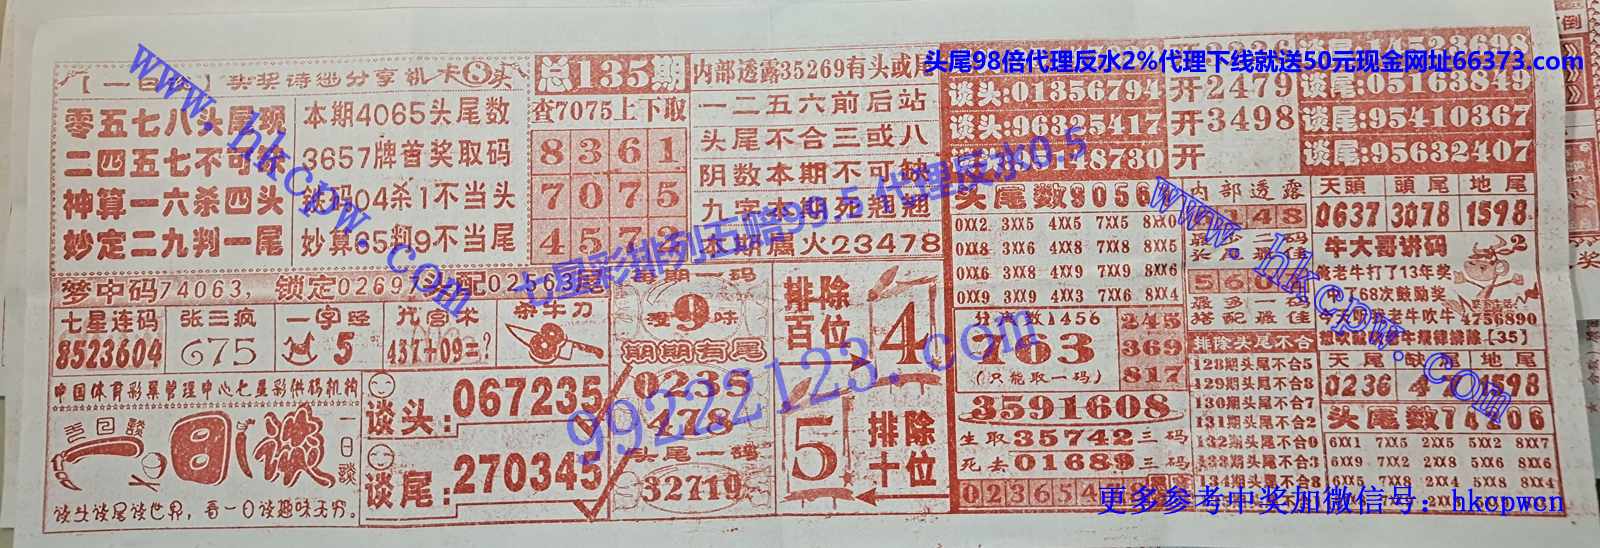 头尾98倍代理反水2%代理下线就送50元现金网址66373.com
奖诗
分享机
卡8头
零五七八头尾现
二四五七不可
神算一六杀四头
妙定二九判一尾
本期4065头尾数
3657牌首奖取码
铁码04杀1不当头
妙算65判9不当尾
总135期
查7075上下取
8361
7075
457
内部透露35269有头或尾
一二五六前后站
头尾不合三或八
阴数本期不可缺
九字本期死翘翘
本期属火23478
谈头:01356794
谈头:96325417
48730
开2479
开3498
开
谈尾:05163849
谈尾:95410367
谈尾:95632407
梦中码74063,锁定0269
头配02563尾
七星连码
8523604
张三疯
675
一字经
5
九宫术
437+09=?
杀牛刀
中国体育彩票管理中心七星彩供码机构
一日谈
一日谈
谈头谈尾谈世界,看一日谈趣味无穷。
谈头:067235
谈尾:270345
每期一码
9
期期有尾
0235
478
头尾一码
32719
排除百位
4
5
排除十位
头尾数9056
0XX2 3XX5 4XX5 7XX5 8XX0
0XX8 3XX6 4XX8 7XX8 8XX5
0XX6 3XX8 4XX9 7XX9 8XX6
0XX9 3XX9 4XX3 7XX6 8XX4
1456
763
(只能取一码)
245
369
817
3591608
生取35742三码
死去01689三码
023654
内部透露
48
560
最多一码
搭配最佳
排除头尾不合
128期头尾不合5
129期头尾不合8
130期头尾不合7
131期头尾不合2
132期头尾不合0
133期头尾不合3
134期头尾不合8
天頭
0637
頭尾
3078
地尾
1598
牛大哥讲码
俺老牛打了13年奖
中了68次鼓励奖
老牛吹牛
4756890
[35]
天尾
0236
缺尾
地尾
1598
头尾数74206
6XX1 7XX5 2XX5 5XX2 8XX7
6XX9 7XX2 2XX8 5XX6 8XX6
www.hkcpw.com
www.hkcpw.com
七星彩排列五赔99.5代理反水0.5
99222123.com
更多参考中奖加微信号:hkcpwcn